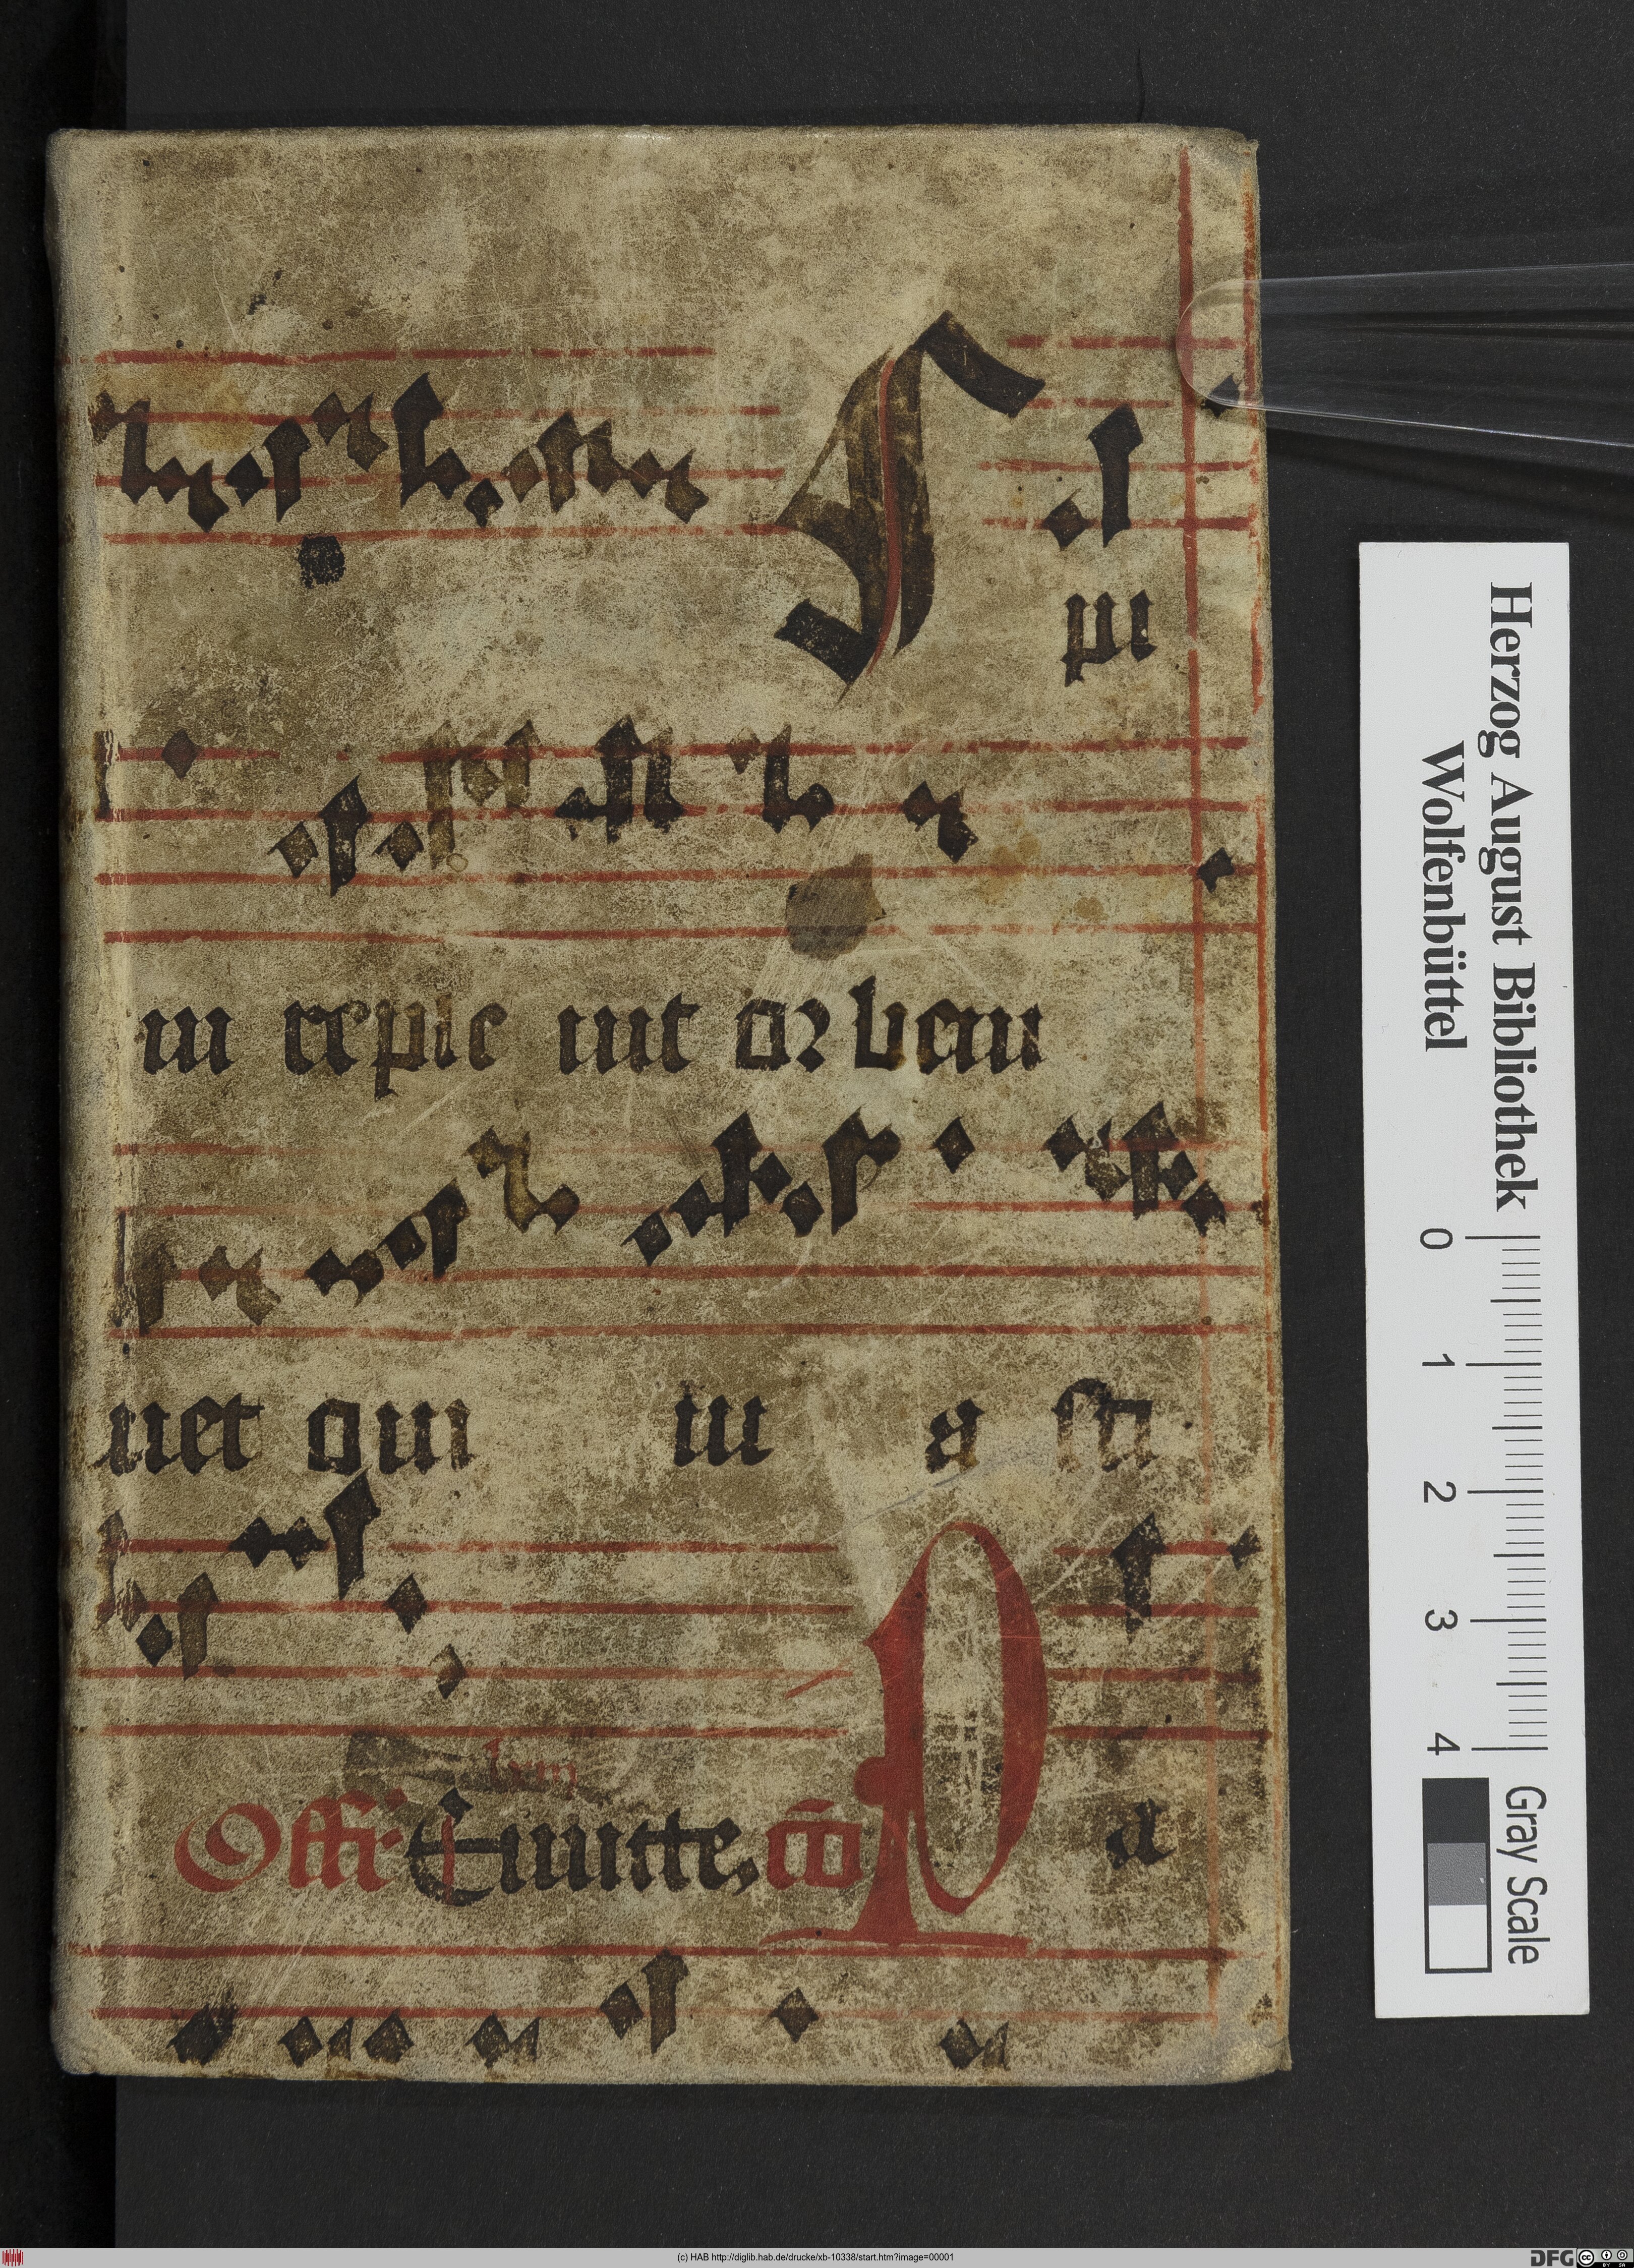 S pi
ni reple uit or bem
net om ni a sci
lxvii
Offr Emitte, cō P a
Herzog August Bibliothek
Wolfenbüttel
0 1 2 3 4
Gray Scale
(c) HAB http://diglib.hab.de/drucke/xb-10338/start.htm?image=00001
DFG
cc BY SA